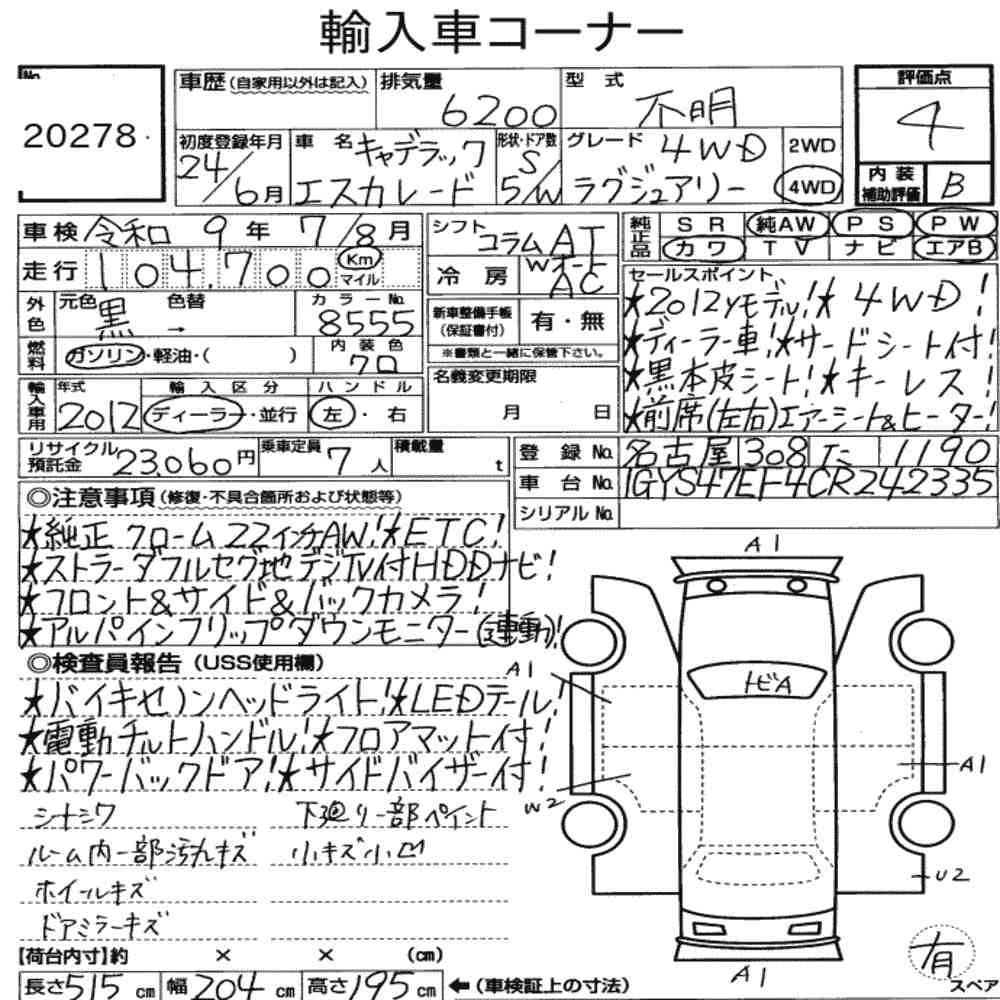 輸入車コーナー
No.
20278
車歴(自家用以外は記入)
排気量
6200
型式
不明
評価点
4
内装補助評価
B
初度登録年月
24/6月
車名
キャデラック
エスカレード
形状・ドア数
S
5/W
グレード
4WD
ラグジュアリー
2WD
4WD
車検 令和 9年 7/8月
走行 104,700 Km マイル
外色 元色 黒 色替 →
カラーNo.
8555
燃料 ガソリン・軽油・( )
内装色
クロ
輸入車用 年式 2012
輸入区分
ディーラー・並行
ハンドル
左・右
シフト
コラムAT
冷房
WオートAC
新車整備手帳(保証書付) 有・無
※書類と一緒に保管下さい。
名義変更期限
月 日
純正品 SR 純AW PS PW
カワ TV ナビ エアB
セールスポイント
★2012yモデル!★4WD!
★ディーラー車!★サードシート付!
★黒本皮シート!★キーレス!
★前席(左右)エアーシート&ヒーター!
リサイクル預託金 23,060円
乗車定員 7人
積載量 t
登録No. 名古屋 308 1190
車台No. 1GYS47EF4CR242335
シリアルNo.
◎注意事項(修復・不具合箇所および状態等)
★純正クロム22インチAW!★ETC!
★ストラーダフルセグ地デジTV付HDDナビ!
★フロント&サイド&バックカメラ!
★アルパインフリップダウンモニター(連動)!
◎検査員報告(USS使用欄)
★バイキセノンヘッドライト!★LEDテール!
★電動チルトハンドル!★フロアマット付!
★パワーバックドア!★サイドバイザー付!
シナシワ 下廻り一部ペイント
ルーム内一部汚れキズ 小キズ小凹
ホイールキズ
ドアミラーキズ
A1
A1
トビA
A1
W2
U2
A1
有
スペア
【荷台内寸】約 × × (cm)
長さ515cm 幅204cm 高さ195cm ←(車検証上の寸法)